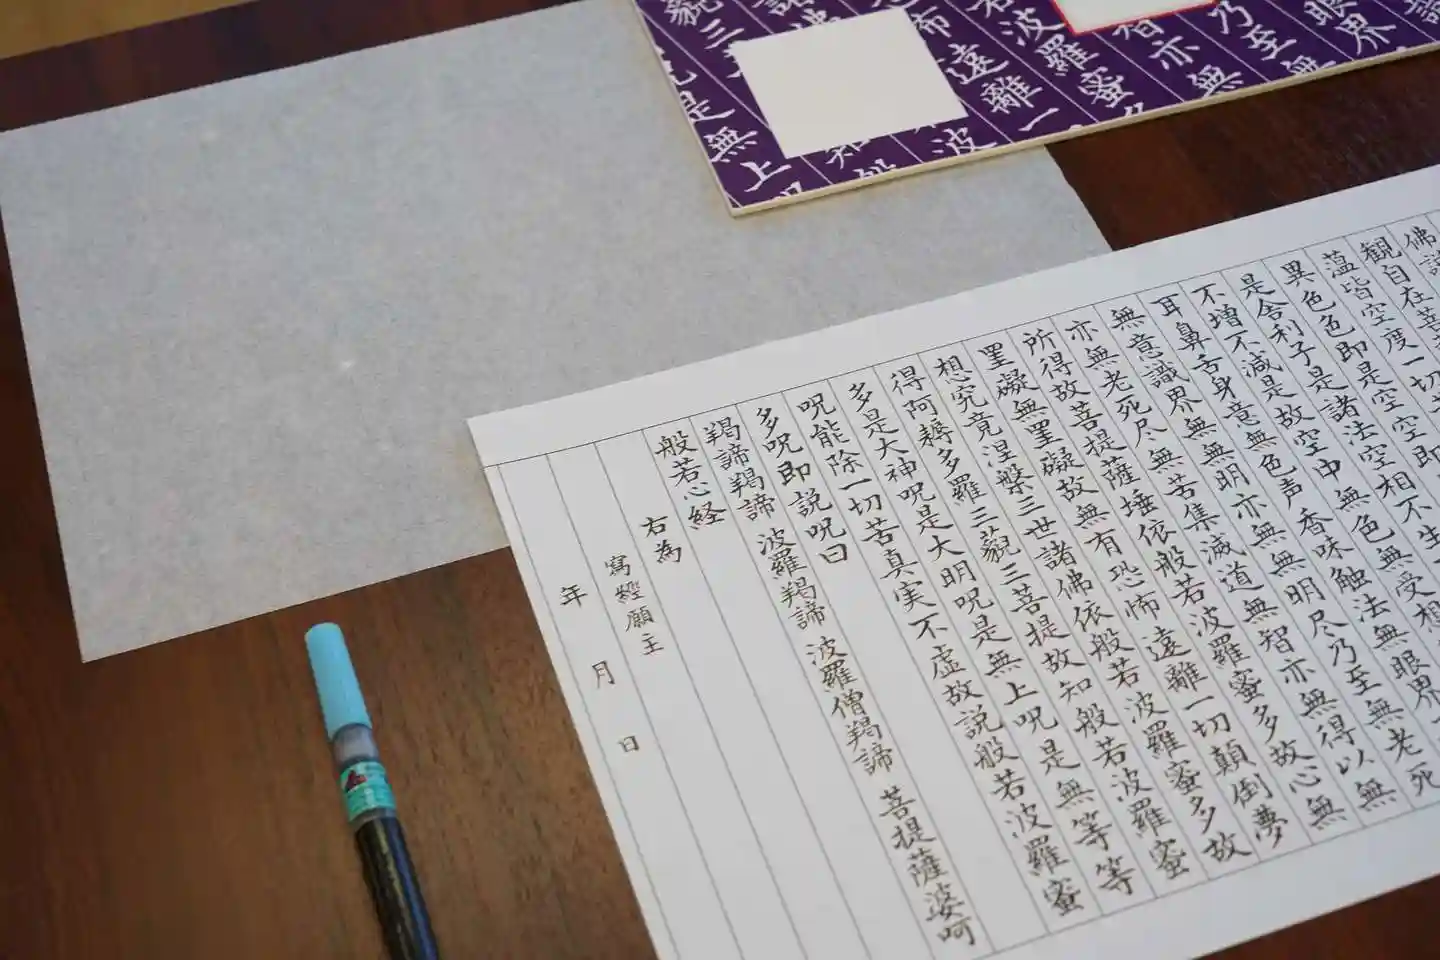 眼界
乃至無
智亦無
波羅蜜多
遠離一
波
藐三
是無上呪
佛説
観自在菩
蘊皆空度一切
異色色即是空空即
是舎利子是諸法空相不生
不増不減是故空中無色無受想
耳鼻舌身意無色声香味触法無眼界
無意識界無無明亦無無明尽乃至無老死
亦無老死尽無苦集滅道無智亦無得以無
所得故菩提薩埵依般若波羅蜜多故心無
罣礙無罣礙故無有恐怖遠離一切顛倒夢
想究竟涅槃三世諸佛依般若波羅蜜多故
得阿耨多羅三藐三菩提故知般若波羅蜜
多是大神呪是大明呪是無上呪是無等等
呪能除一切苦真実不虚故説般若波羅蜜
多呪即説呪曰
羯諦羯諦 波羅羯諦 波羅僧羯諦 菩提薩婆呵
般若心経
右為
寫經願主
年 月 日